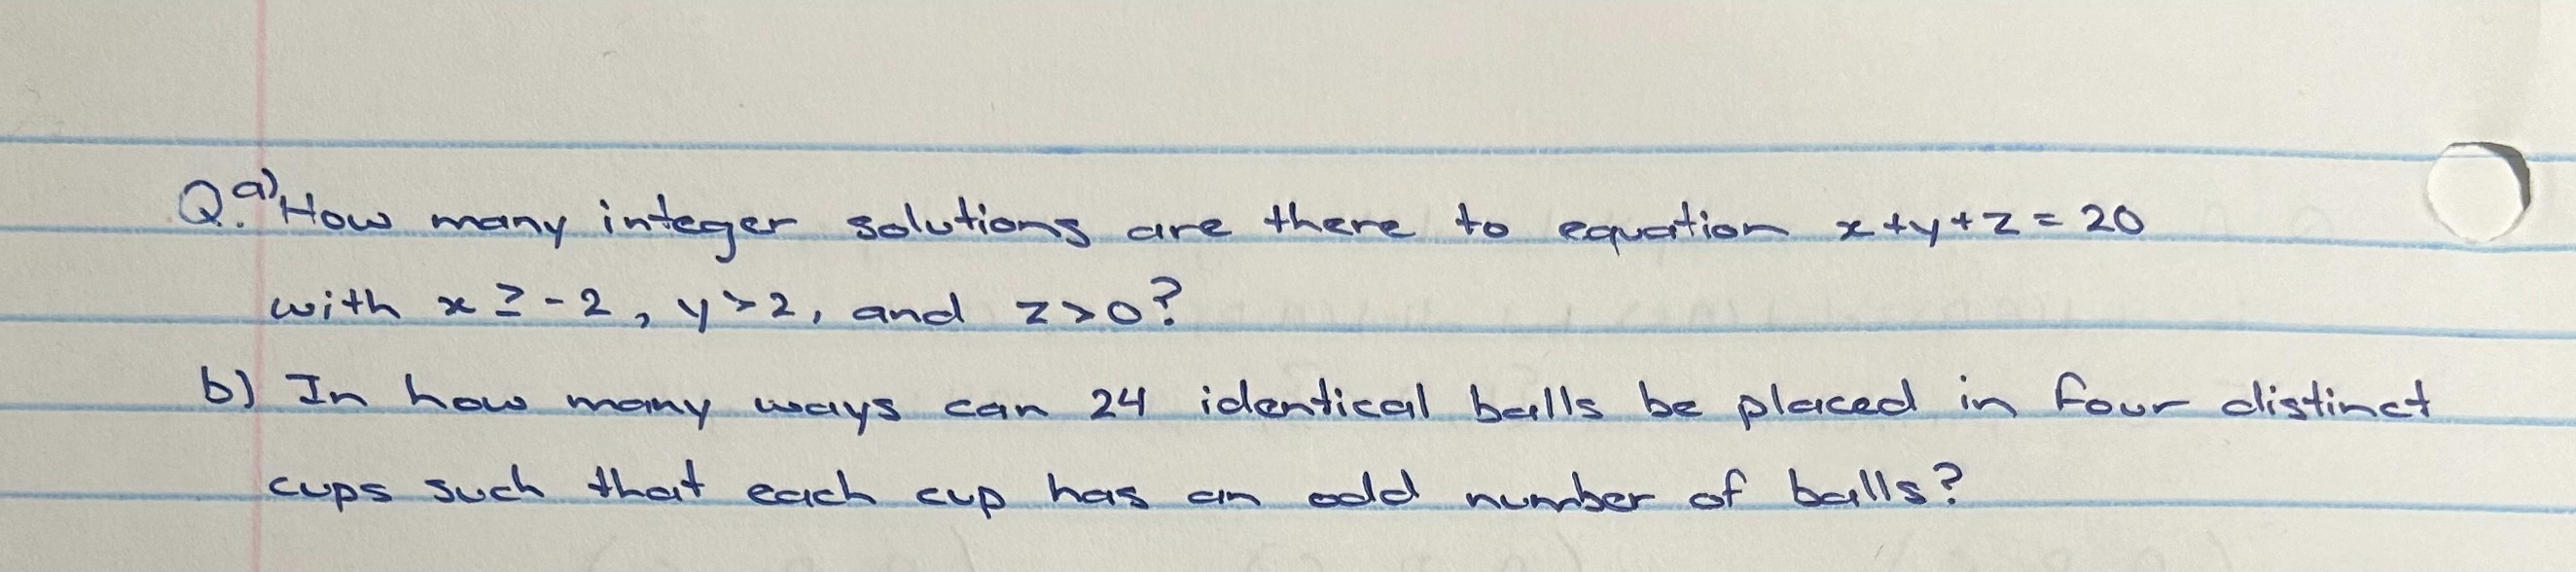 Q. a) How many integer solutions are there to equation x+y+z=20
with x ≥ -2, y>2, and z>0?
b) In how many ways can 24 identical balls be placed in four distinct
cups such that each cup has an odd number of balls?